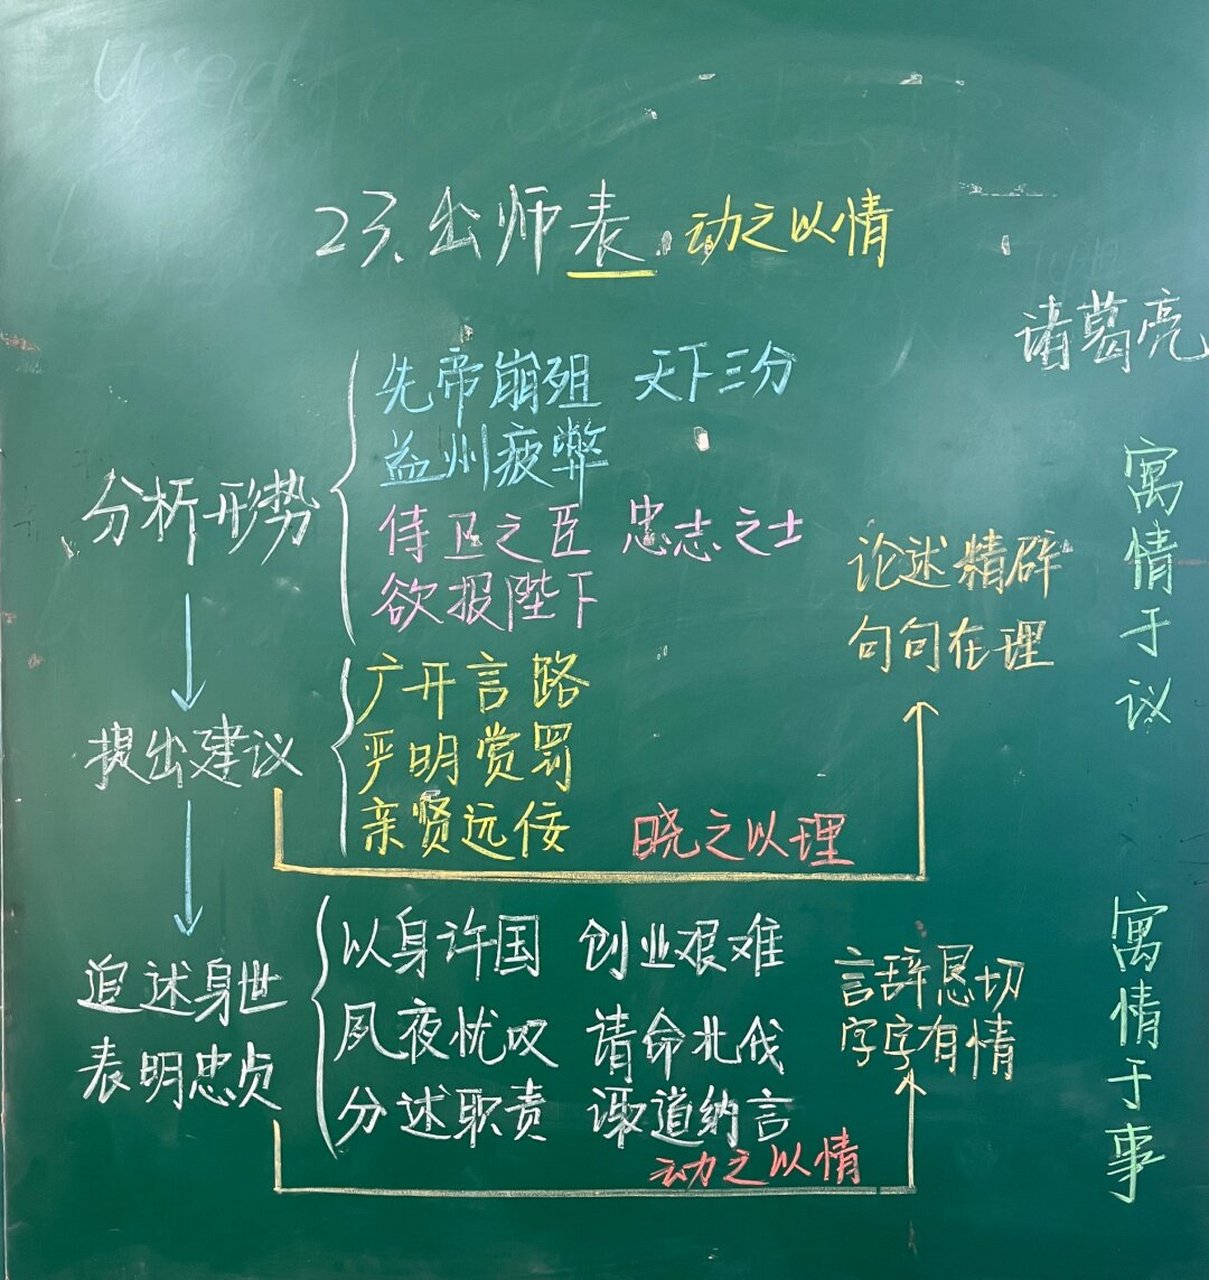 23.出师表 动之以情
诸葛亮
分析形势
先帝崩殂 天下三分
益州疲弊
侍卫之臣 忠志之士
欲报陛下
提出建议
广开言路
严明赏罚
亲贤远佞
晓之以理
论述精辟
句句在理
寓情于议
追述身世
表明忠贞
以身许国 创业艰难
夙夜忧叹 请命北伐
分述职责 诹道纳言
动之以情
言辞恳切
字字有情
寓情于事